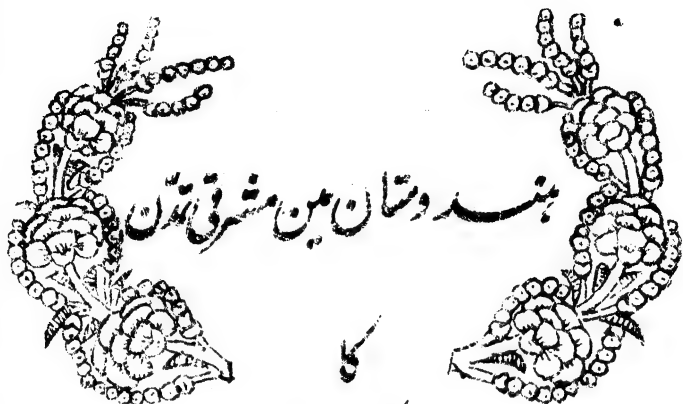 ہندوستان مین مشرقی تمدّن
کا